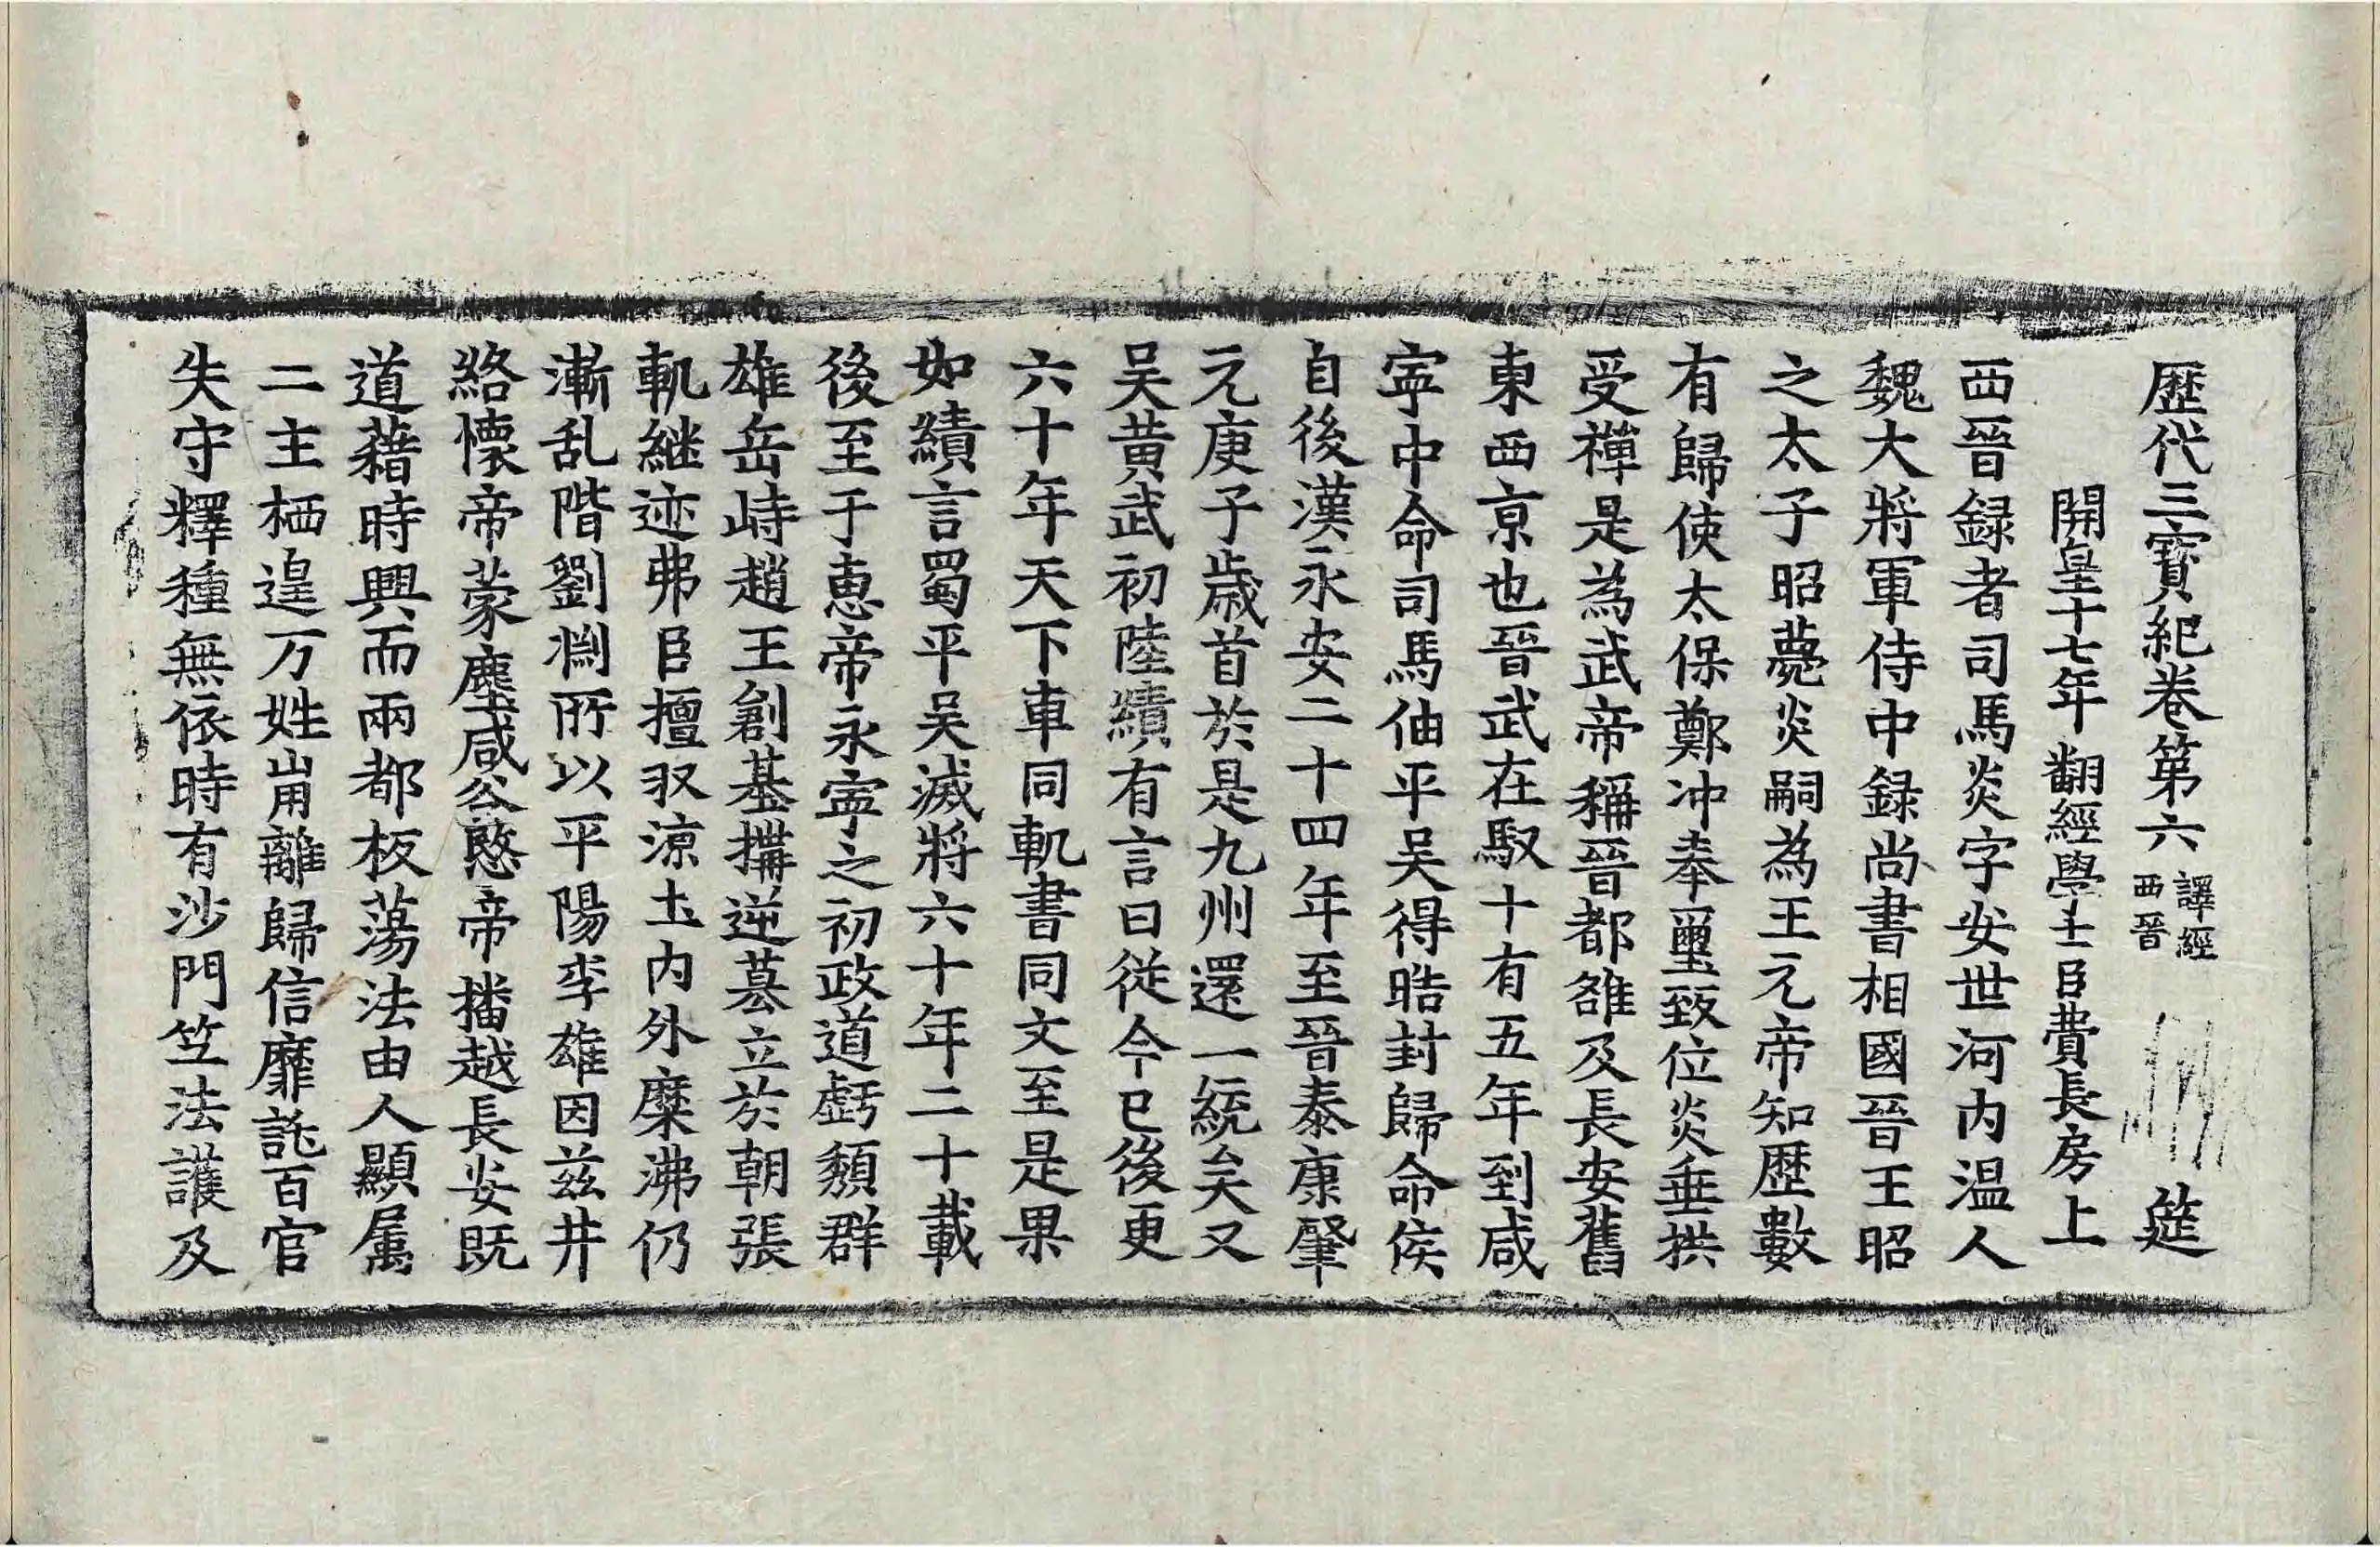 歷代三寶紀卷第六 譯經西晉 筵
開皇十七年翻經學士臣費長房上
西晉録者司馬炎字安世河内温人
魏大將軍侍中録尚書相國晉王昭
之太子昭薨炎嗣為王元帝知歷數
有歸使太保鄭冲奉璽致位炎垂拱
受禪是為武帝稱晉都雒及長安舊
東西京也晉武在馭十有五年到咸
寧中命司馬伷平吴得晧封歸命侯
自後漢永安二十四年至晉泰康肇
元庚子歳首於是九州還一統矣又
吴黄武初陸績有言曰從今已後更
六十年天下車同軌書同文至是果
如績言蜀平吴滅將六十年二十載
後至于惠帝永寧之初政道虧頹群
雄岳峙趙王創基搆逆募立於朝張
軌継迹弗臣擅収涼土内外糜沸仍
漸乱階劉淵所以平陽李雄因兹井
絡懷帝蒙塵咸谷愍帝播越長安既
道藉時興而兩都板荡法由人顯屬
二主栖遑万姓崩離歸信靡託百官
失守釋種無依時有沙門竺法護及